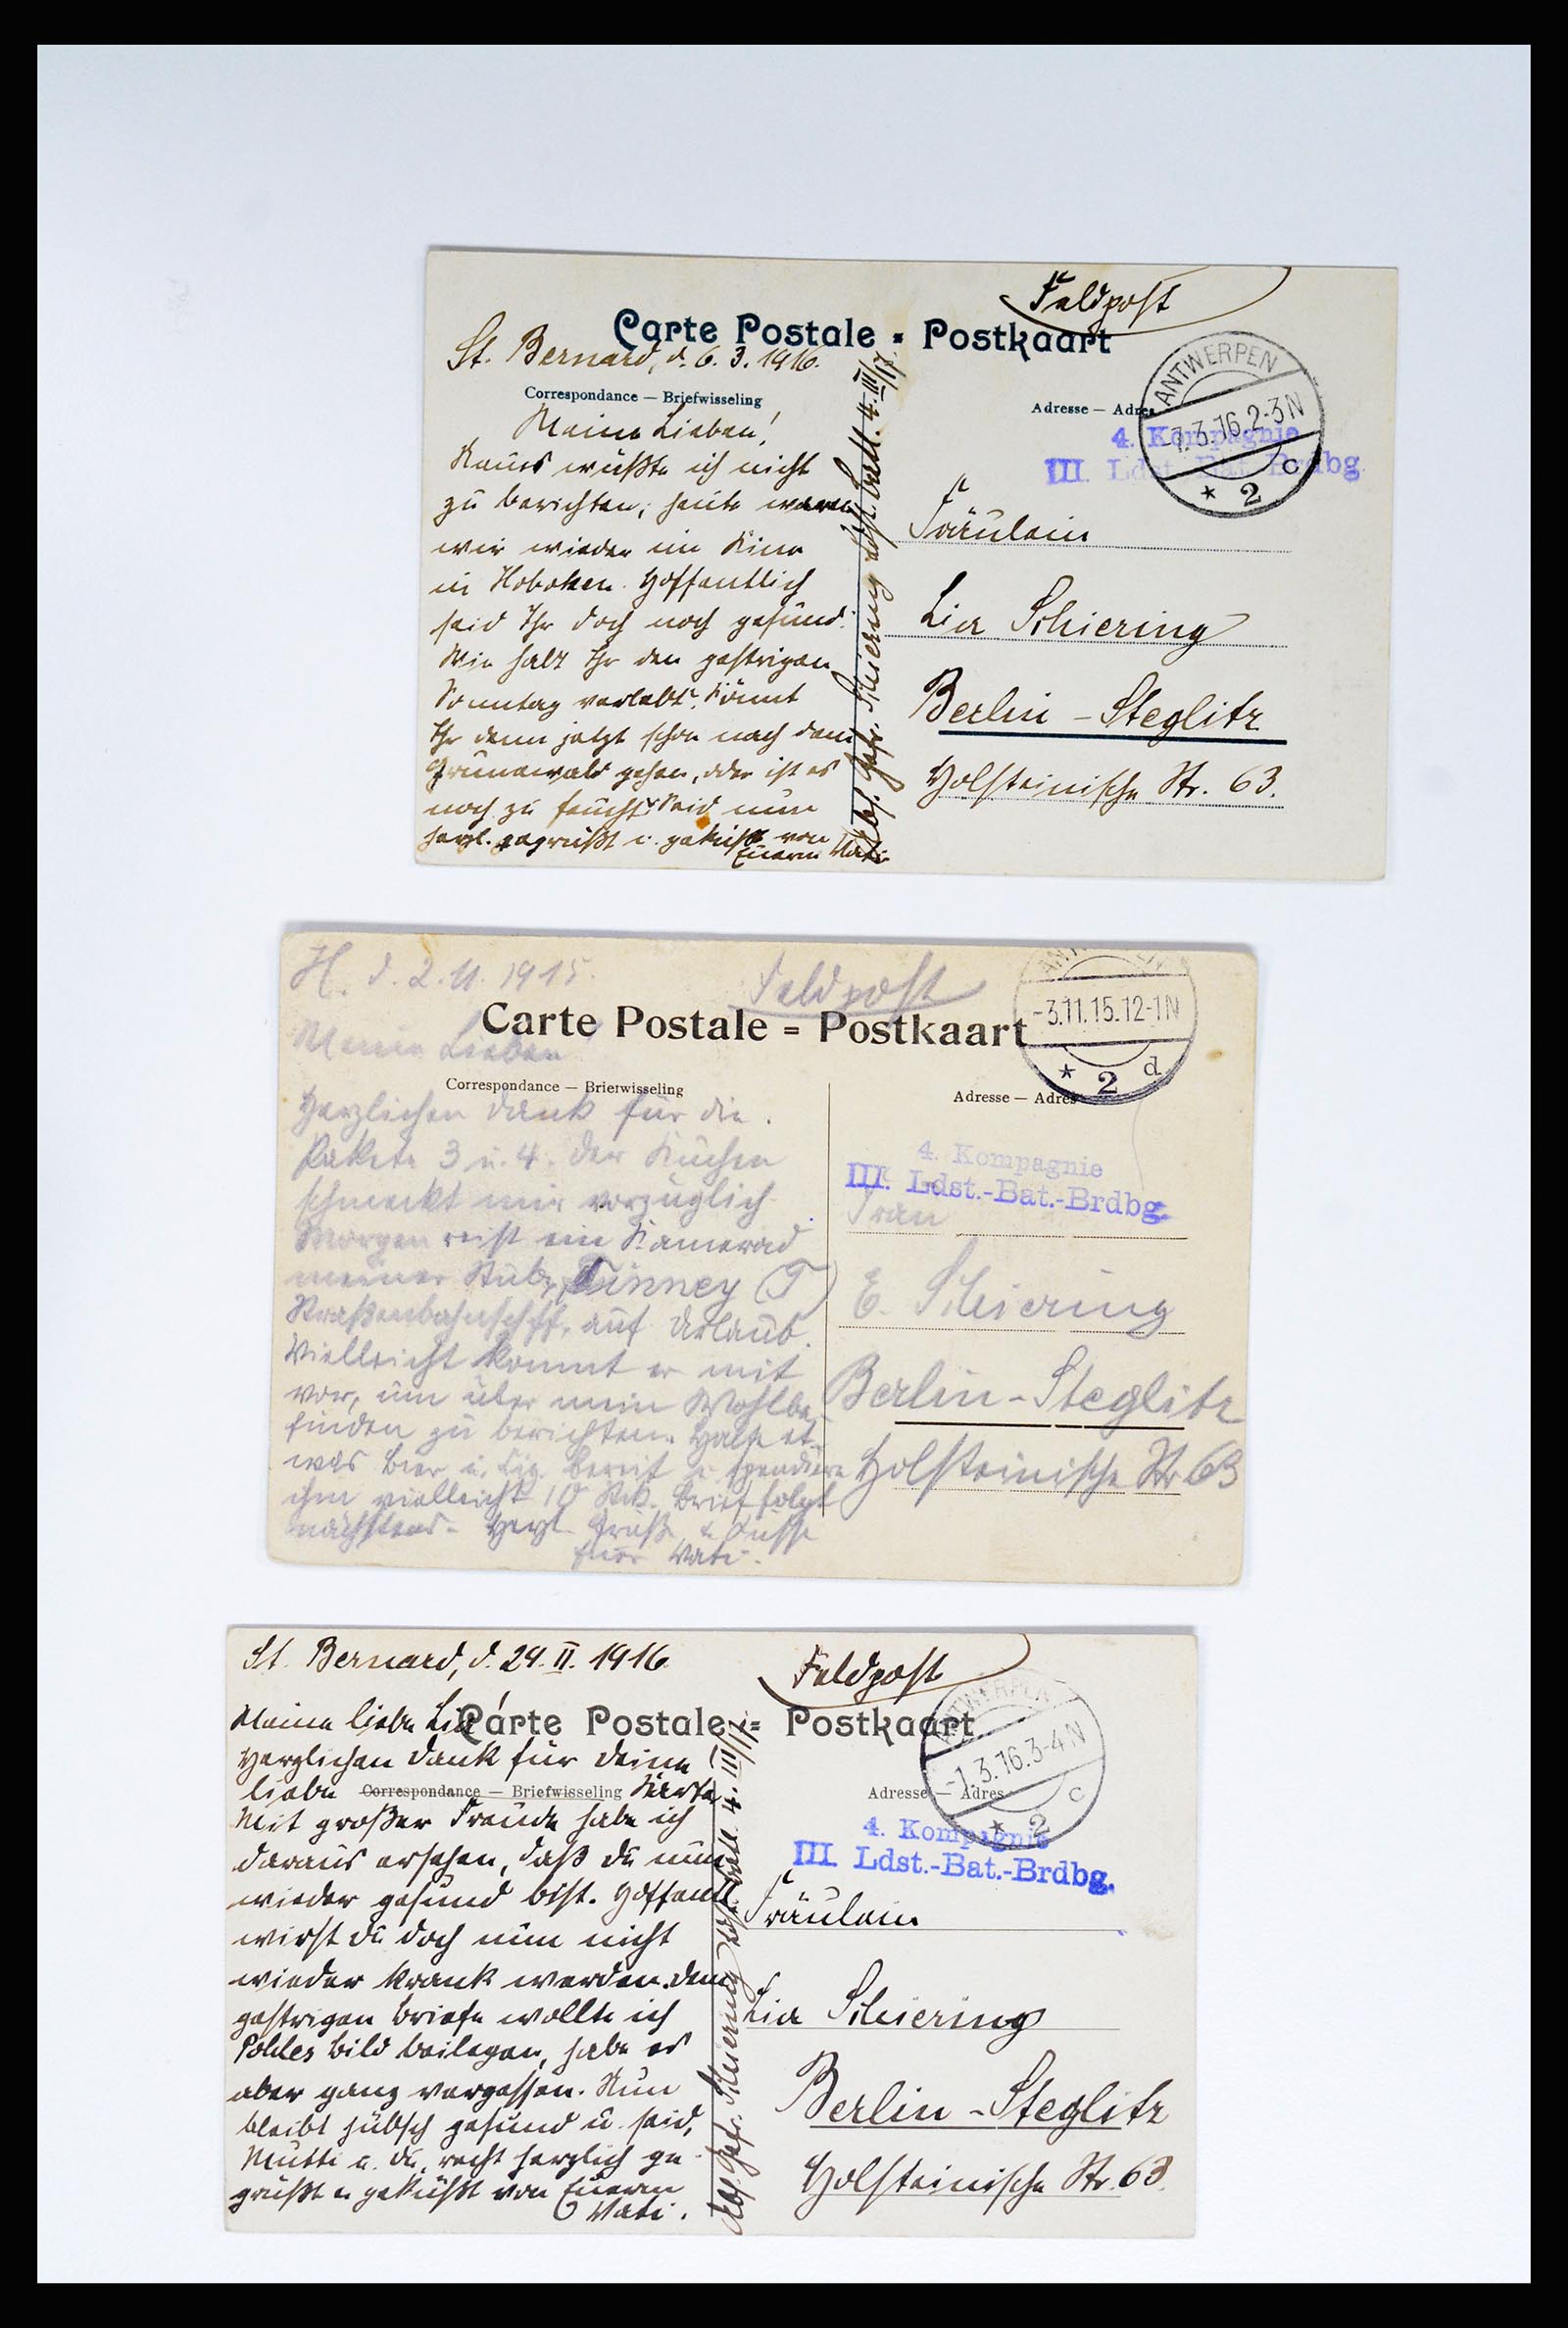 Feldpost
Carte Postale = Postkaart
St. Bernard, d. 6. 3. 1916.
Correspondance — Briefwisseling
Adresse — Adres
ANTWERPEN
-7.3.16.2-3N
* 2 c
4. Kompagnie
III. Ldst.-Bat.-Brdbg.
Meine Lieben!
Neues wüßte ich nicht
zu berichten; heute waren
wir wieder im Kino
in Hoboken. Hoffentlich
seid Ihr doch noch gesund.
Wie habt Ihr den gestrigen
Sonntag verlebt? Könnt
Ihr denn jetzt schon nach dem
Grunewald gehen, oder ist es
noch zu feucht? Seid nun
herzl. gegrüßt u. geküßt von
Euerm Vati
Abs. Gefr. Schiering Ldst. Batl. 4. III/17.
Fräulein
Lia Schiering
Berlin-Steglitz
Holsteinische Str. 63.
H. d. 2. 11. 1915.
Feldpost
Carte Postale = Postkaart
-3.11.15.12-1N
* 2 d
Meine Lieben
Correspondance — Briefwisseling
Adresse — Adres
Herzlichen Dank für die
Pakete 3 u. 4. Der Kuchen
schmeckt mir vorzüglich.
Morgen reist ein Kamerad
meiner Stube, Tinney (T)
Straßenbahnschff. auf Urlaub.
Vielleicht kommt er mit
vor, um über mein Wohlbe-
finden zu berichten. Halte et-
was Bier u. Zig. bereit u. spendiere
ihm vielleicht 10 Stck. Brief folgt
nächstens. Herzl. Grüße u. Küsse
Euer Vati.
4. Kompagnie
III. Ldst.-Bat.-Brdbg.
Frau
E. Schiering
Berlin-Steglitz
Holsteinische Str. 63
St. Bernard, d. 29. II. 1916.
Feldpost
Carte Postale = Postkaart
ANTWERPEN
-1.3.16.3-4N
* 2 c
Meine liebe Lia
Herzlichen Dank für Deine
liebe Karte!
Correspondance — Briefwisseling
Adresse — Adres
Mit großer Freude habe ich
daraus ersehen, daß Du nun
wieder gesund bist. Hoffentl.
wirst Du doch nun nicht
wieder krank werden. Dem
gestrigen Briefe wollte ich
Pohles Bild beilegen, habe es
aber ganz vergessen. Nun
bleibt hübsch gesund u. seid,
Mutti u. Du, recht herzlich ge-
grüßt u. geküßt von Euerm
Vati.
Abs. Gefr. Schiering Ldst. Batl. 4. III/17.
4. Kompagnie
III. Ldst.-Bat.-Brdbg.
Fräulein
Lia Schiering
Berlin-Steglitz
Holsteinische Str. 63.